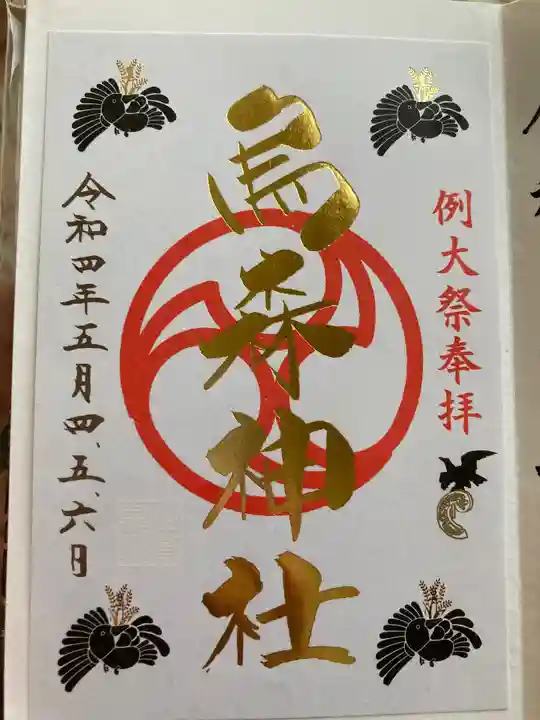 例大祭奉拝
烏森神社
令和四年五月四、五、六日